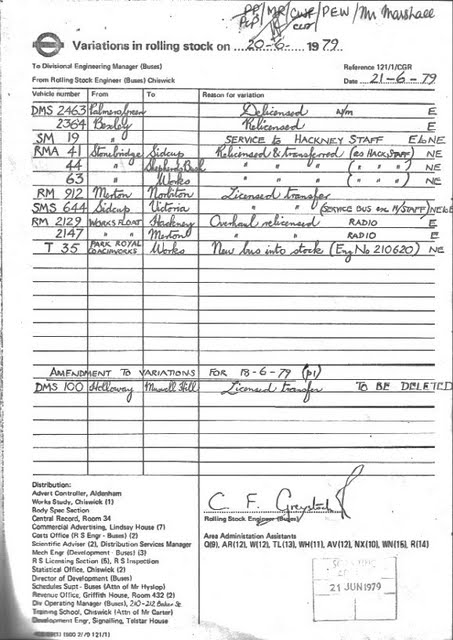 PP/MR/CWF/PEW/Mr Marshall
Variations in rolling stock on 20-6- 1979.
To Divisional Engineering Manager (Buses)
Reference 121/1/CGR
From Rolling Stock Engineer (Buses) Chiswick
Date 21-6-79
Vehicle number From To Reason for variation
DMS 2463 Palmers Green Delicensed N/M E
2364 Bexley Relicensed E
SM 19 " SERVICE to HACKNEY STAFF E&NE
RMA 41 Stonebridge Sidcup Relicensed & transferred (as HACK STAFF) NE
44 " Shepherds Bush " " " ( " " " ) NE
63 " Works " " " ( " " " ) NE
RM 912 Merton Norbiton Licensed transfer
SMS 644 Sidcup Victoria " " (SERVICE BUS on H/STAFF) NE&E
RM 2129 WORKS FLOAT Hackney Overhaul relicensed RADIO E
2147 " Merton " " RADIO E
T 35 PARK ROYAL COACHWORKS Works New bus into stock (Eng No 210620) NE
AMENDMENT TO VARIATIONS FOR 18-6-79 (p1)
DMS 100 Holloway Muswell Hill Licensed transfer TO BE DELETED
Distribution:
Advert Controller, Aldenham
Works Study, Chiswick (1)
Body Spec Section
Central Record, Room 34
Commercial Advertising, Lindsay House (7)
Costs Office (R S Engr - Buses) (2)
Scientific Adviser (2), Distribution Services Manager
Mech Engr (Development - Buses) (3)
R S Licensing Section (5), R S Inspection
Statistical Office, Chiswick (2)
Director of Development (Buses)
Schedules Supt - Buses (Attn of Mr Hyslop)
Revenue Office, Griffith House, Room 432 (2)
Div Operating Manager (Buses), 210-212 Baker St
Training School, Chiswick (Attn of Mr Carter)
Development Engr, Signalling, Telstar House
C F Greystock
Rolling Stock Engineer (Buses)
Area Administation Assistants
Q(9), AR(12), W(12), TL(13), WH(11), AV(12), NX(10), WN(15), R(14)
21 JUN 1979